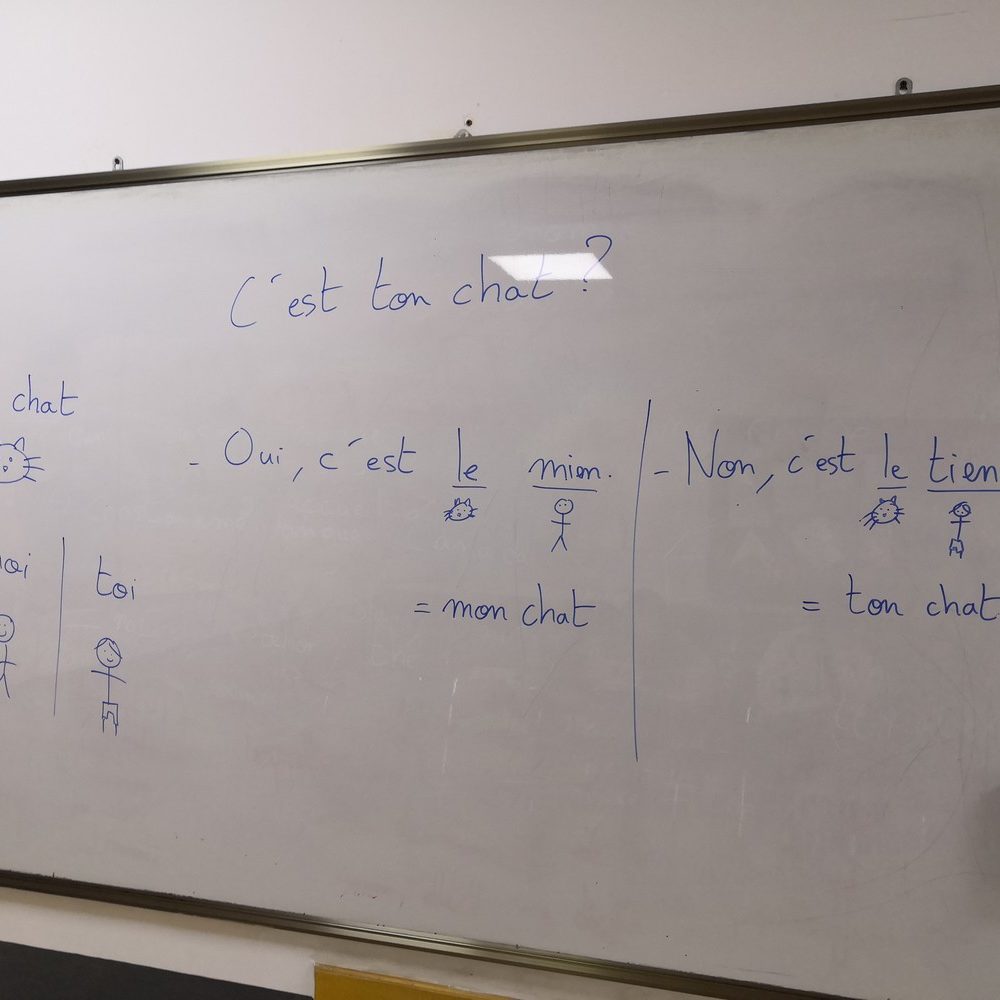 C'est ton chat ?
chat
- Oui, c'est le mien.
- Non, c'est le tien
toi
= mon chat
= ton chat